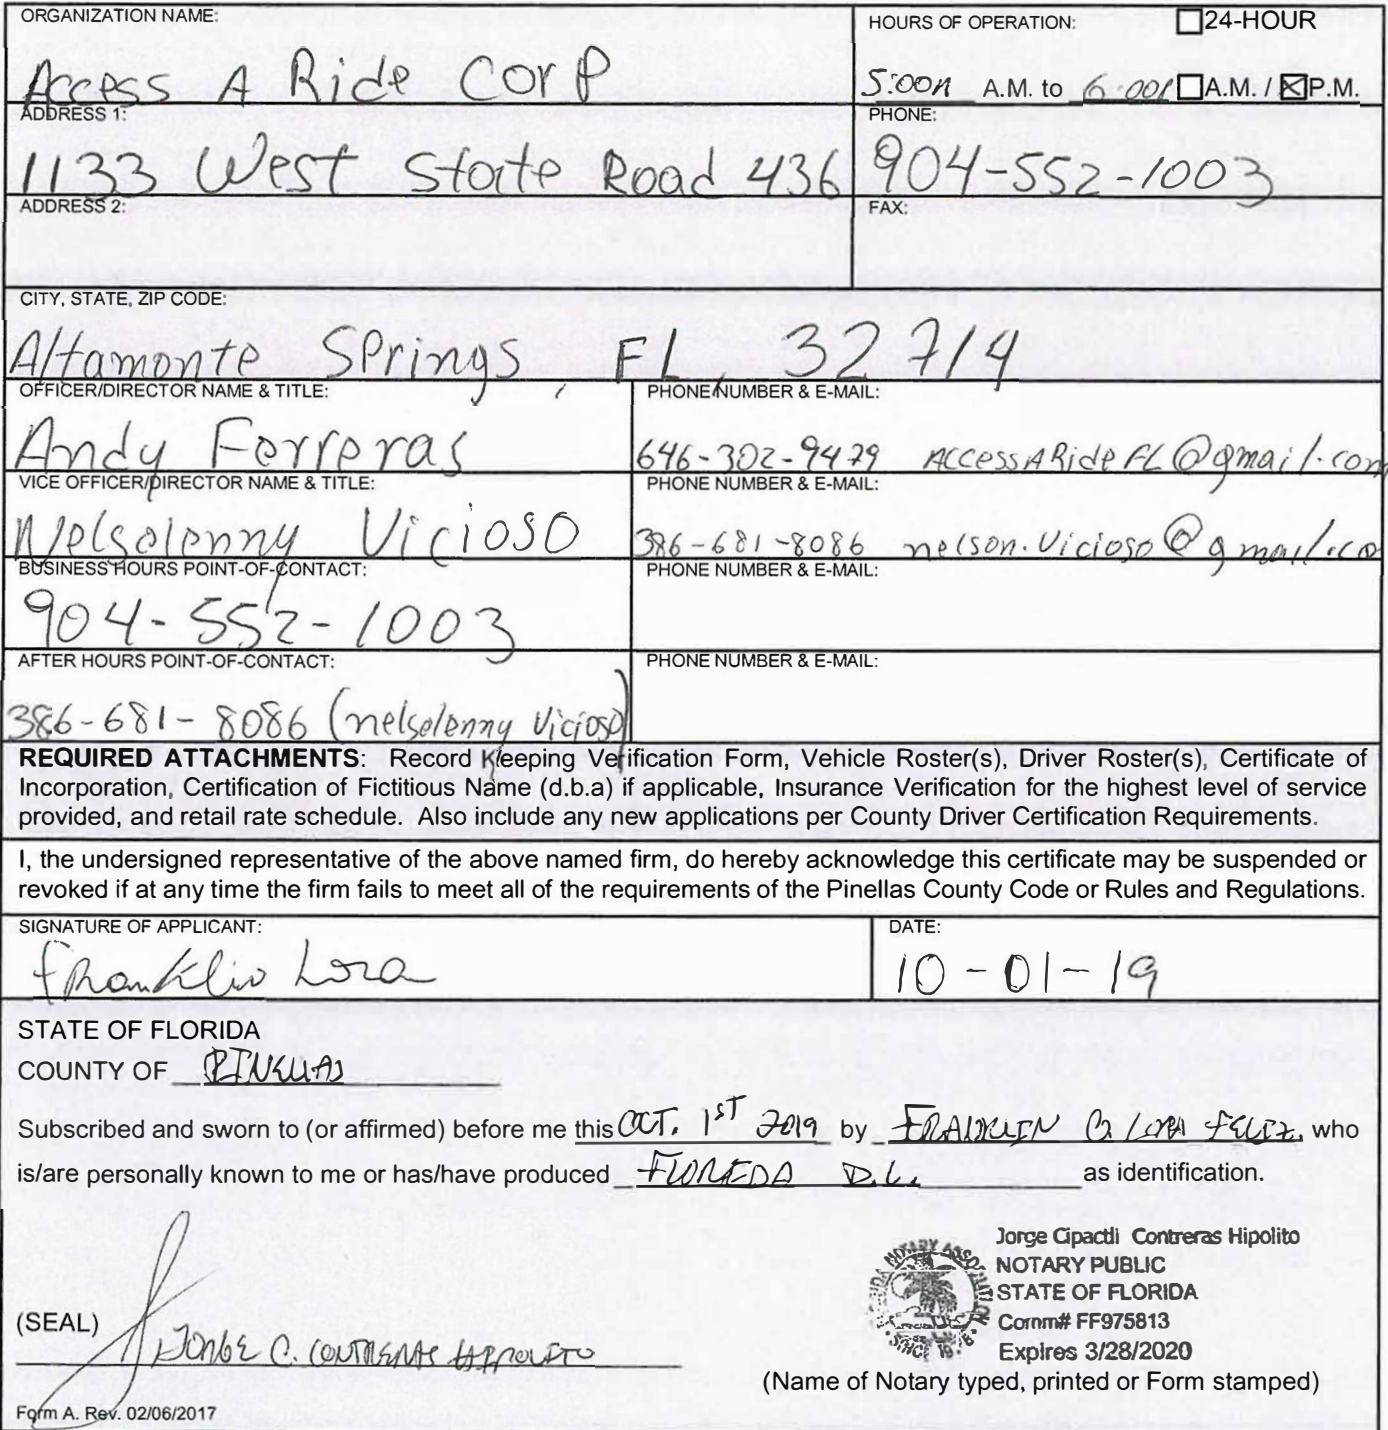 ORGANIZATION NAME:
Access A Ride Corp
HOURS OF OPERATION: 24-HOUR
5:00A A.M. to 6:00P A.M. / P.M.
ADDRESS 1:
1133 West State Road 436
PHONE:
904-552-1003
ADDRESS 2:
FAX:
CITY, STATE, ZIP CODE:
Altamonte Springs, FL, 32714
OFFICER/DIRECTOR NAME & TITLE:
Andy Ferreras
PHONE NUMBER & E-MAIL:
646-302-9479 AccessARideFL@gmail.com
VICE OFFICER/DIRECTOR NAME & TITLE:
Nelsolenny Vicioso
PHONE NUMBER & E-MAIL:
386-681-8086 nelson.Vicioso@gmail.co
BUSINESS HOURS POINT-OF-CONTACT:
904-552-1003
PHONE NUMBER & E-MAIL:
AFTER HOURS POINT-OF-CONTACT:
386-681-8086 (nelsolenny Vicioso)
PHONE NUMBER & E-MAIL:
REQUIRED ATTACHMENTS: Record Keeping Verification Form, Vehicle Roster(s), Driver Roster(s), Certificate of
Incorporation, Certification of Fictitious Name (d.b.a) if applicable, Insurance Verification for the highest level of service
provided, and retail rate schedule. Also include any new applications per County Driver Certification Requirements.
I, the undersigned representative of the above named firm, do hereby acknowledge this certificate may be suspended or
revoked if at any time the firm fails to meet all of the requirements of the Pinellas County Code or Rules and Regulations.
SIGNATURE OF APPLICANT:
Franklin Lora
DATE:
10-01-19
STATE OF FLORIDA
COUNTY OF PINELLAS
Subscribed and sworn to (or affirmed) before me this OCT. 1ST 2019 by FRANKLIN G LORA FELIZ, who
is/are personally known to me or has/have produced FLORIDA D.L. as identification.
Jorge Cipactli Contreras Hipolito
NOTARY PUBLIC
STATE OF FLORIDA
Comm# FF975813
Expires 3/28/2020
(SEAL)
JORGE C. CONTRERAS HIPOLITO
(Name of Notary typed, printed or Form stamped)
Form A. Rev. 02/06/2017